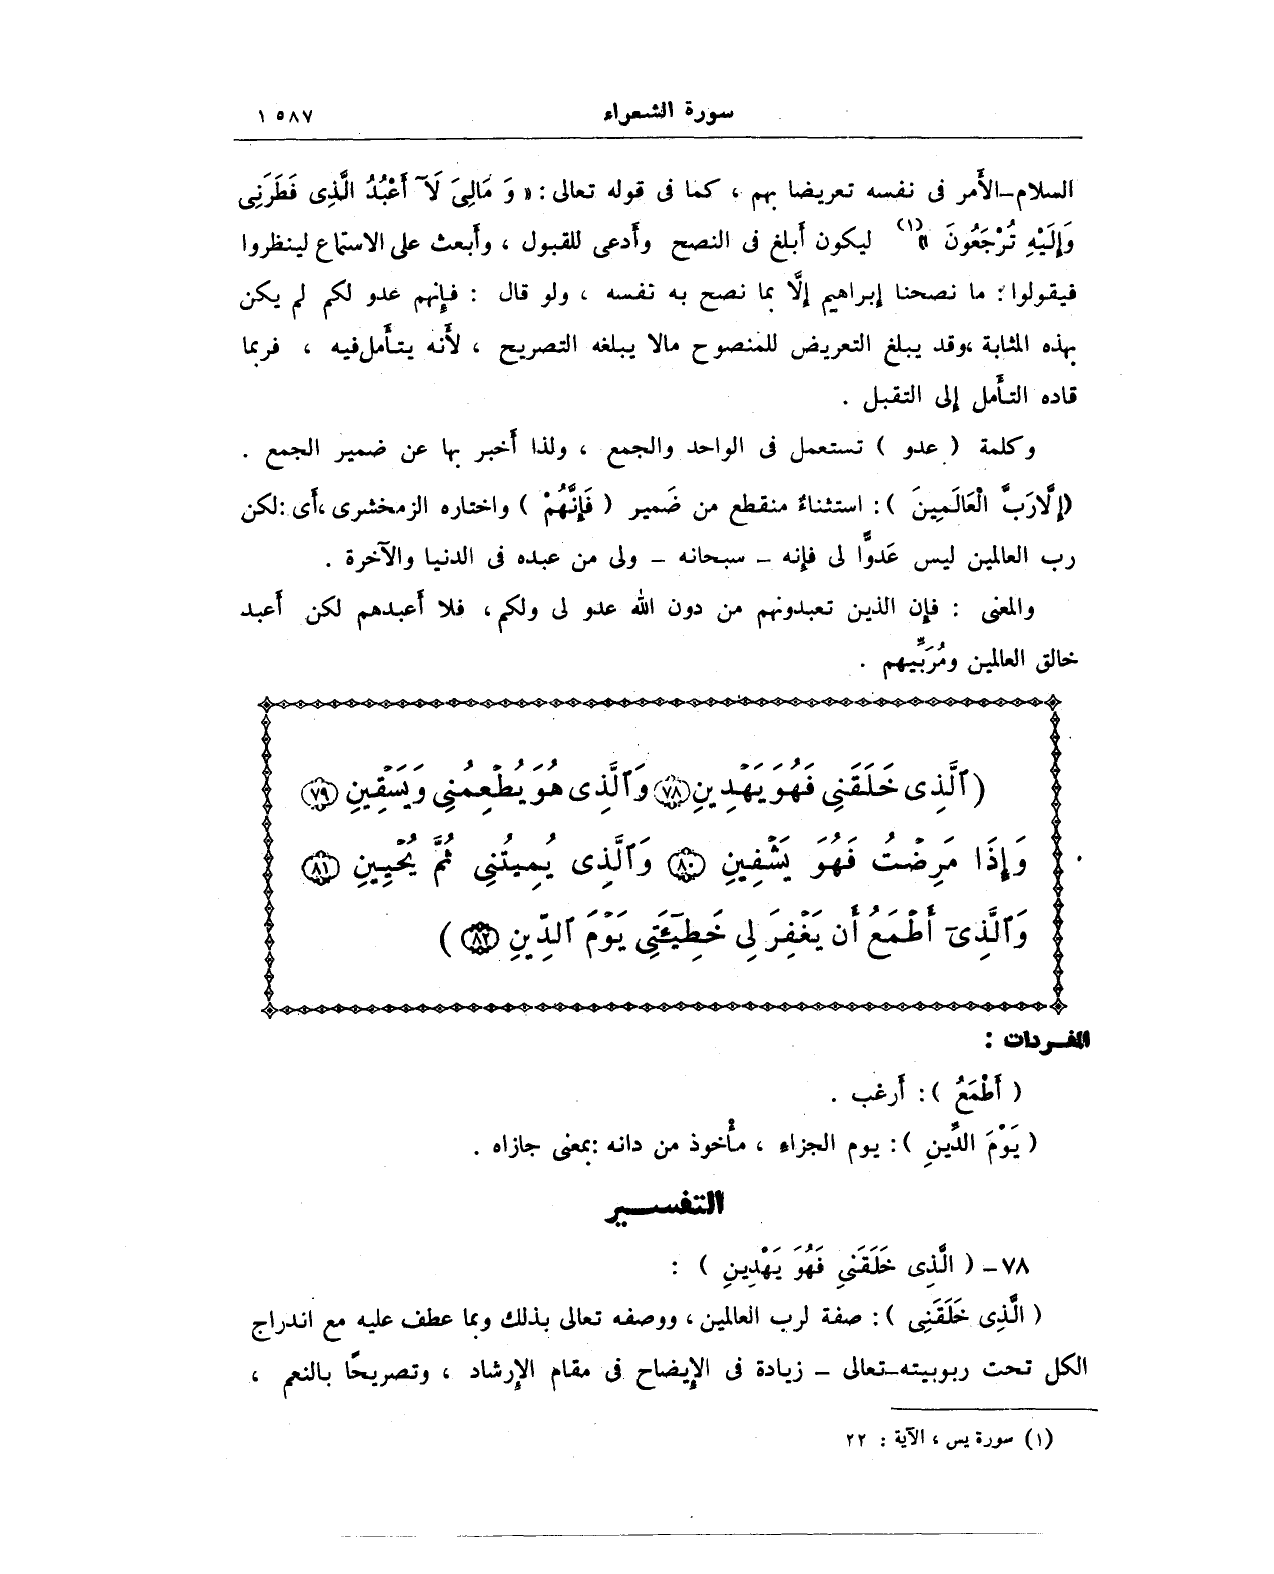 سورة الشعراء ١٥٨٧
السلام–الأَمر فى نفسه تعريضا بهم ، كما فى قوله تعالى : « وَ مَالِىَ لَآ أَعْبُدُ الَّذِى فَطَرَنِى
وَإِلَيْهِ تُرْجَعُونَ »(١) ليكون أَبلغ فى النصح وأَدعى للقبول ، وأَبعث على الاستماع لينظروا
فيقولوا : ما نصحنا إبراهيم إلَّا بما نصح به نفسه ، ولو قال : فإنهم عدو لكم لم يكن
بهذه المثابة ،وقد يبلغ التعريض للمنصوح مالا يبلغه التصريح ، لأَنه يتأَمل فيه ، فربما
قاده التأَمل إلى التقبل .
وكلمة ( عدو ) تستعمل فى الواحد والجمع ، ولذا أَخبر بها عن ضمير الجمع .
(إِلَّا رَبَّ الْعَالَمِينَ ) : استثناءٌ منقطع من ضَمير ( فَإِنَّهُمْ ) واختاره الزمخشرى ،أَى :لكن
رب العالمين ليس عَدوًّا لى فإنه – سبحانه – ولى من عبده فى الدنيا والآخرة .
والمعنى : فإن الذين تعبدونهم من دون الله عدو لى ولكم ، فلا أَعبدهم لكن أَعبد
خالق العالمين ومُرَبِّيهم .
( ٱلَّذِى خَلَقَنِى فَهُوَ يَهْدِينِ ٧٨ وَٱلَّذِى هُوَ يُطْعِمُنِى وَيَسْقِينِ ٧٩
وَإِذَا مَرِضْتُ فَهُوَ يَشْفِينِ ٨٠ وَٱلَّذِى يُمِيتُنِى ثُمَّ يُحْيِينِ ٨١
وَٱلَّذِىٓ أَطْمَعُ أَن يَغْفِرَ لِى خَطِيٓـَٔتِى يَوْمَ ٱلدِّينِ ٨٢ )
المفردات :
( أَطْمَعُ ) : أَرغب .
( يَوْمَ الدِّينِ ) : يوم الجزاء ، مأْخوذ من دانه :بمعنى جازاه .
التفسير
٧٨– ( الَّذِى خَلَقَنِى فَهُوَ يَهْدِينِ ) :
( الَّذِى خَلَقَنِى ) : صفة لرب العالمين ، ووصفه تعالى بذلك وبما عطف عليه مع اندراج
الكل تحت ربوبيته–تعالى – زيادة فى الإيضاح فى مقام الإرشاد ، وتصريحًا بالنعم ،
(١) سورة يس ، الآية : ٢٢